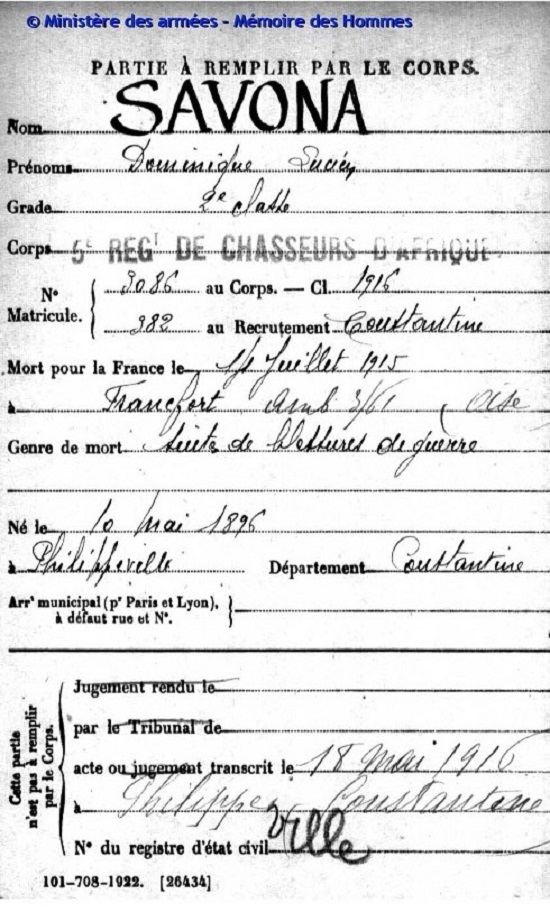 © Ministère des armées - Mémoire des Hommes
PARTIE À REMPLIR PAR LE CORPS.
Nom SAVONA
Prénoms Dominique Lucien
Grade 2e classe
Corps 5e REGt DE CHASSEURS D'AFRIQUE
N° Matricule. { 3086 au Corps. — Cl. 1916
382 au Recrutement Constantine
Mort pour la France le Juillet 1915
à Francfort amb Oise
Genre de mort suites de blessures de guerre
Né le 10 mai 1896
à Philippeville Département Constantine
Arrt municipal (pr Paris et Lyon),
à défaut rue et N°. }
Cette partie
n'est pas à remplir
par le Corps.
Jugement rendu le
par le Tribunal de
acte ou jugement transcrit le 18 mai 1916
à Philippeville Constantine
N° du registre d'état civil
101-708-1922. [26434]